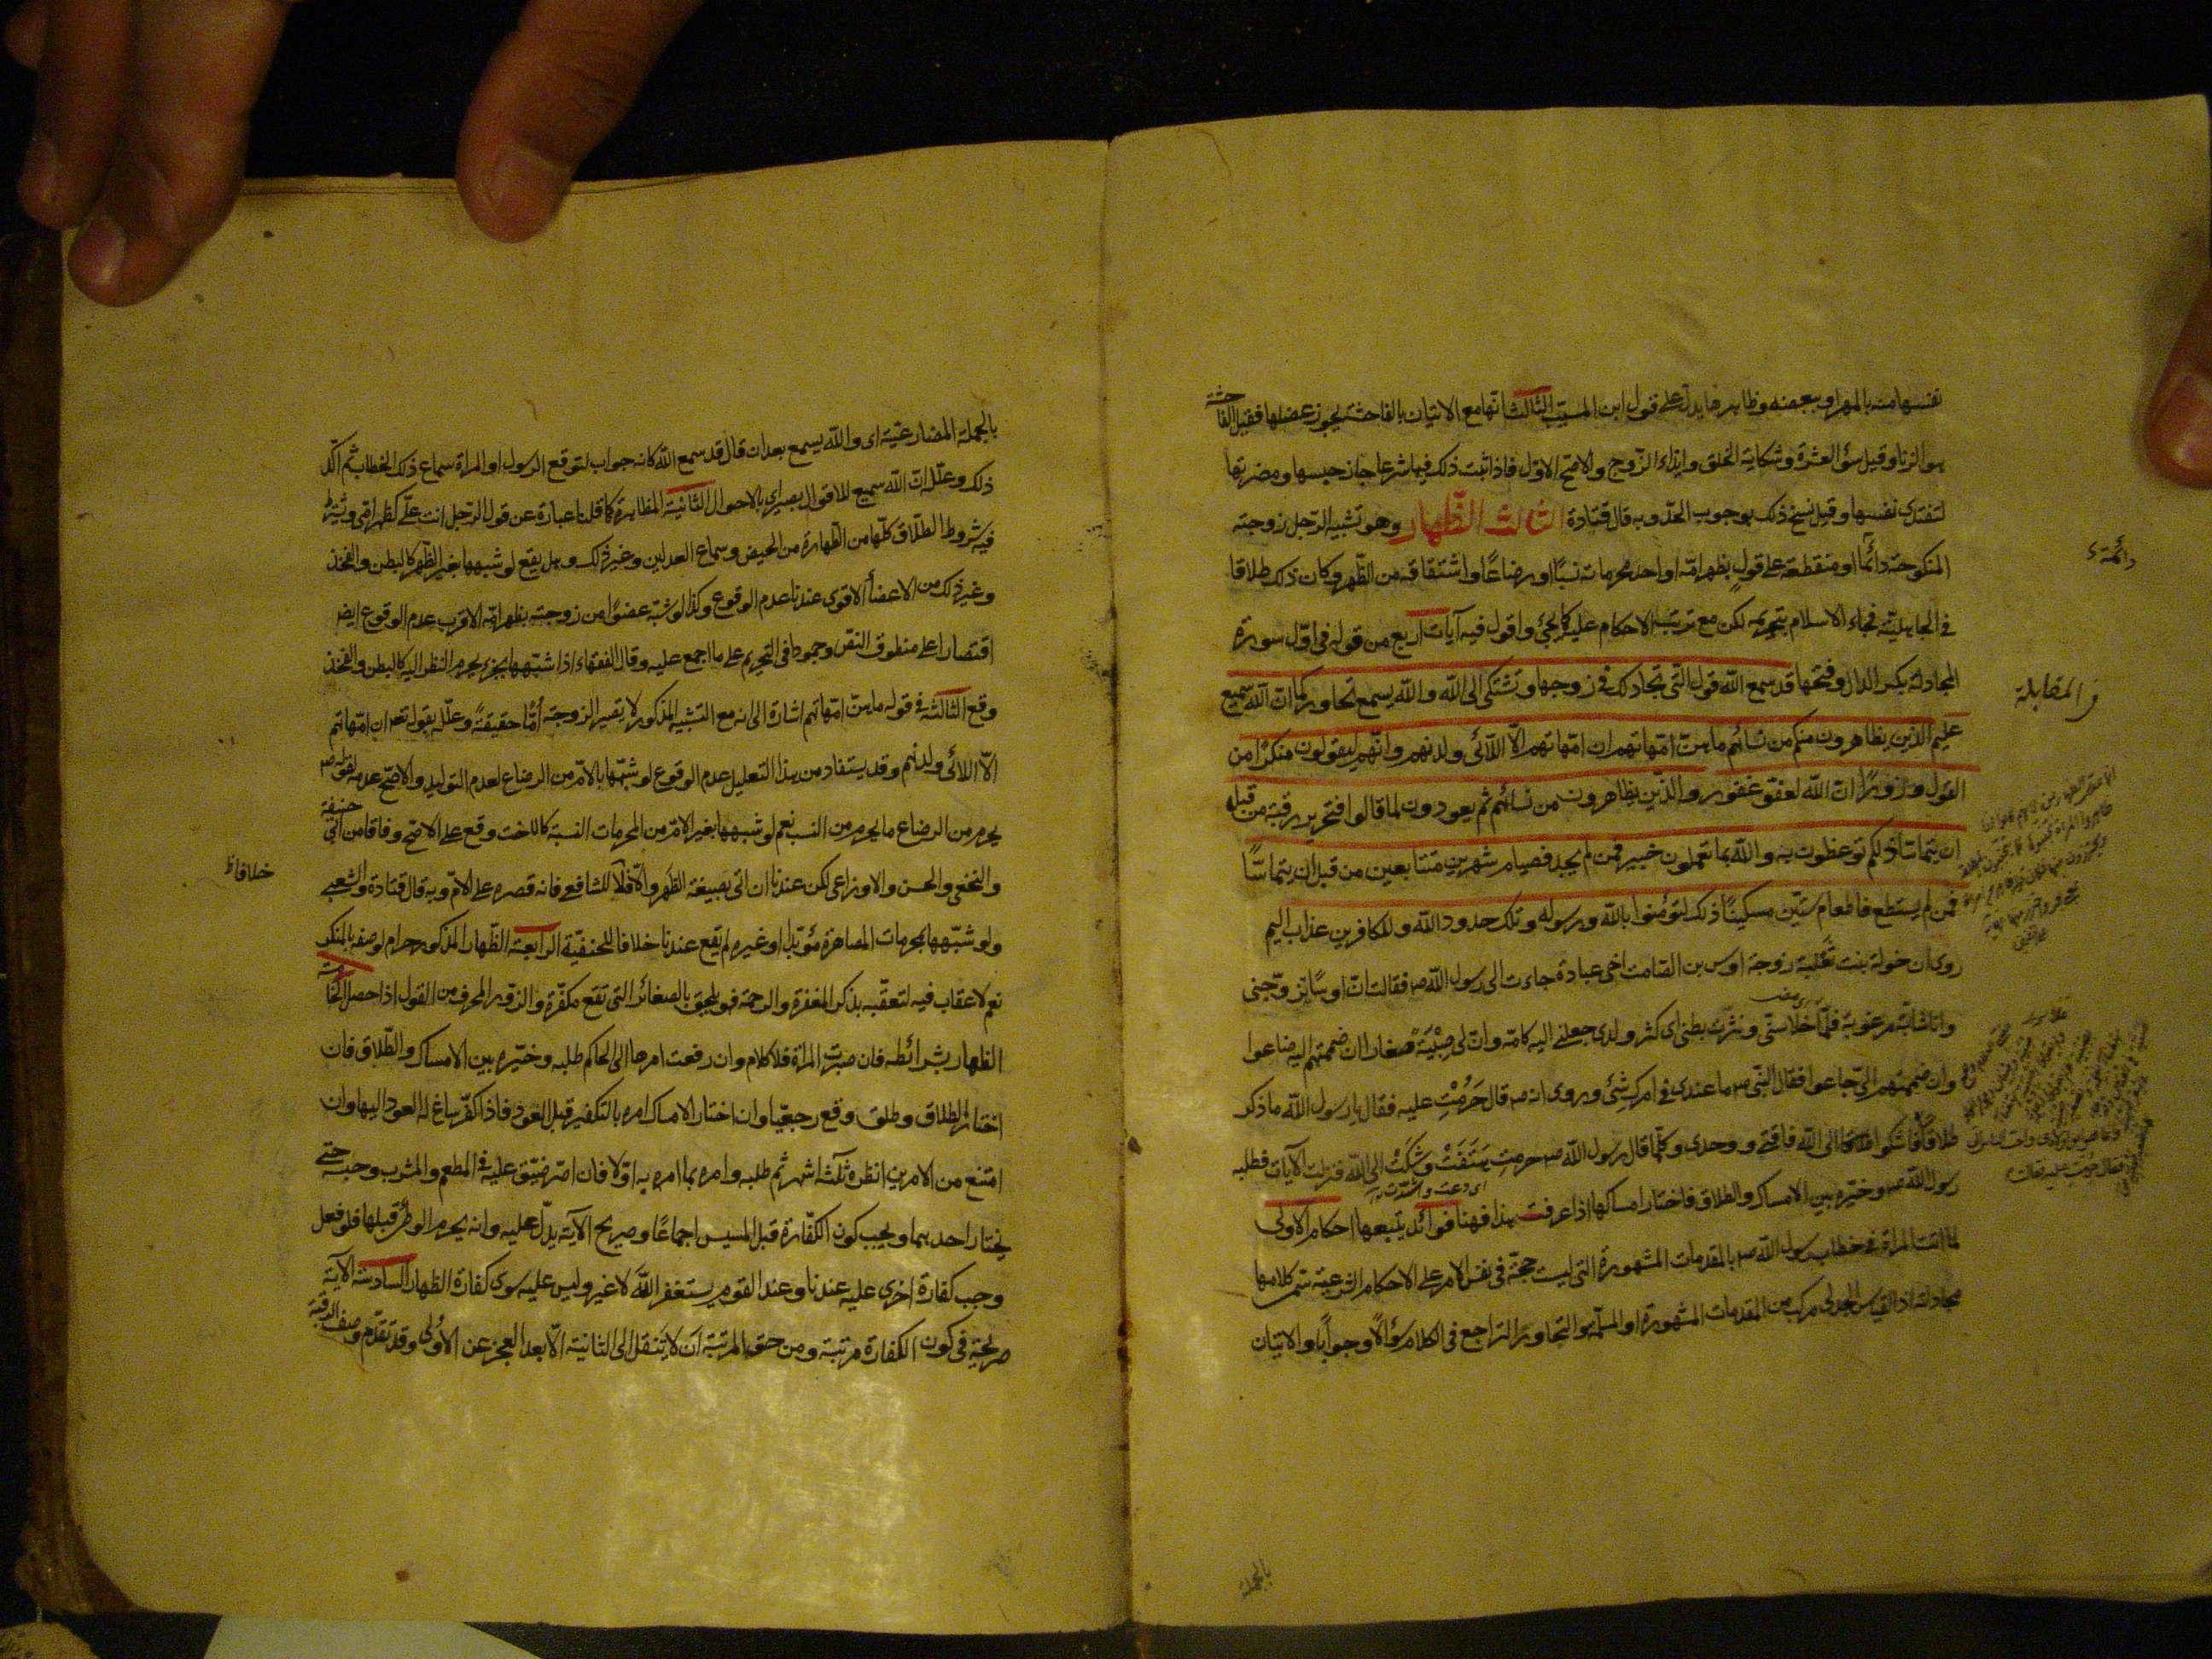 نفسها منه بالمهر او ببعضه وظاهرها يدل على قول ابن المسيّب الثالث انّها مع الاتيان بالفاحشة يجوز عضلها فقيل الفاحشة
هو الزنا وقيل سوء العشرة وشكاية الخلق وايذاء الزوج والاصح الاول فاذا ثبت ذلك فيها شرعا جاز حبسها ومضربتها
لتفتدى نفسها وقيل نسخ ذلك بوجوب الحدّ وبه قال قتادة الثالث الظّهار وهو تشبيه الرّجل زوجته
المنكوحة دائمًا او منقطعة على قول بظهر امّه او احد محرماته نسبًا او رضاعًا واشتقاقه من الظّهر وكان ذلك طلاقا
فى الجاهلية فجاء الاسلام بتحريمه لكن مع ترتب الاحكام عليه كما يجئ واقول فيه آيات اربع من قوله فى اوّل سورة
المجادلة بكسر الدال وفتحها قد سمع الله قول الّتى تجادلك فى زوجها وتشتكى الى الله والله يسمع تحاوركما انّ الله سميع
عليم الذين يظاهرون منكم من نسائهم ما هنّ امّهاتهم ان امّهاتهم الّا اللّائى ولدنهم وانّهم ليقولون منكرًا من
القول وزورًا انّ الله لعفوّ غفور والّذين يظاهرون من نسائهم ثم يعودون لما قالوا فتحرير رقبة من قبل
ان يتماسّا ذلكم توعظون به والله بما تعملون خبير فمن لم يجد فصيام شهرين متتابعين من قبل ان يتماسّا
فمن لم يستطع فاطعام ستّين مسكينًا ذلك لتؤمنوا بالله ورسوله وتلك حدود الله وللكافرين عذاب اليم
روى ان خولة بنت ثعلبة زوجة اوس بن الصّامت اخى عبادة جاءت الى رسول الله ص فقالت انّ اوسًا تزوّجنى
وانا شابّة مرغوبة فلمّا خلا سنّى ونثرت بطنى اى كثر ولدى جعلنى اليه كامّه وانّ لى صِبْيَةً صغارا ان ضممتهم اليه ضاعوا
وان ضممتهم الىّ جاعوا فقال النّبى ص ما عندى فى امرك شئ وروى انه ص قال حَرُمْتِ عليه فقال يا رسول الله ما ذكر
طلاقًا فقال اشكوا الى الله فاقتى ووحدى وكلّما قال رسول الله ص حرمت هتفت وشكت الى الله فنزلت الآيات فطلبه
رسول الله ص وخيّره بين الامساك والطلاق فاختار امساكها اذا عرفت هذا فهنا فوائد يتبعها احكام الاولى
لما اتت المراة فى خطاب رسول الله ص بالمقدمات المشهورة التى ليست حجّة فى نفس الامر على الاحكام الشرعيّة سمّى كلامها
مجادلة اذ القياس الجدلى مركب من المقدمات المشهورة او المسلّمة والتحاور التراجع فى الكلام سؤالًا وجوابًا والاتيان
دائمة
فى المقابلة
بالجملة
بالجملة المضارعيّة اى والله يسمع بعد ان قال قد سمع الله كانه جواب لتوقع الرسول او المراة سماع ذلك الخطاب ثم اكّد
ذلك وعلّل انّ الله سميع للاقوال بصير اى بالاحوال الثانية المظاهرة كما قلنا عبارة عن قول الرّجل انت علىّ كظهر امّى ويشترط
فيه شروط الطّلاق كلّها من الطّهارة من الحيض وسماع العدلين وغير ذلك وهل يقع لو شبهها بغير الظّهر كالبطن والفخذ
وغير ذلك من الاعضاء الاقوى عندنا عدم الوقوع وكذا لو شبّه عضوًا من زوجته بظهر امّه الاقرب عدم الوقوع ايضا
اقتصارا على منطوق النصّ وجمودا فى التحريم على ما اجمع عليه وقال الفقهاء اذا شبّهها بجزء يحرم النظر اليه كالبطن والفخذ
وقع الثالثة فى قوله ما هنّ امّهاتهم اشارة الى انه مع التشبيه المذكور لا يصير الزوجة امًّا حقيقةً وعلّل بقوله تعر ان امّهاتهم
الّا اللائى ولدنهم وقد يستفاد من هذا التعليل عدم الوقوع لو شبّهها بالامّ من الرضاع لعدم التوليد والاصحّ عدمه لقوله ص
يحرم من الرضاع ما يحرم من النسب نعم لو شبهها بغير الامّ من المحرمات النسبة كالاخت وقع على الاصح وفاقا من ابى حنيفة
والنخعى والحسن والاوزاعى لكن عندنا ان اتى بصيغة الظهر والّا فلا للشافعى فانه قصره على الامّ وبه قال قتادة والشعبى
ولو شبّهها بمحرمات المصاهرة مؤبّدا او غيره لم يقع عندنا خلافا للحنفيّة الرابعة الظّهار المذكور حرام لوصفه بالمنكر
نعم لا عقاب فيه لتعقّبه بذكر المغفرة والرحمة فهو يلحق بالصغائر التى تقع مكفّرة والزّور المحرف من القول اذا حصل الخامسة
الظهار بشرائطه فان صبرت المراة فلا كلام وان رفعت امرها الى الحاكم طلبه وخيّره بين الامساك والطّلاق فان
اختار الطلاق وطلق وقع رجعيّا وان اختار الامساك امره بالتكفير قبل العود فاذا كفّر ساغ له العود اليها وان
امتنع من الامرين انظره ثلثة اشهر ثم طلبه وامره بما امره به اوّلا فان اصرّ ضيّق عليه فى المطعم والمشرب وحبسه حتى
يختار احدهما ويجب كون الكفّارة قبل المسيس اجماعًا وصريح الآية يدلّ عليه وانه يحرم الوطئ قبلها فلو فعل
وجب كفارة اخرى عليه عندنا وعند القوم يستغفر الله لا غير وليس عليه سوى كفارة الظهار السادسة الآية
صريحة فى كون الكفارة مرتبة ومن حق المرتبة ان لا ينتقل الى الثانية الّا بعد العجز عن الاولى وقد تقدّم وصف الرقبة
خلافا